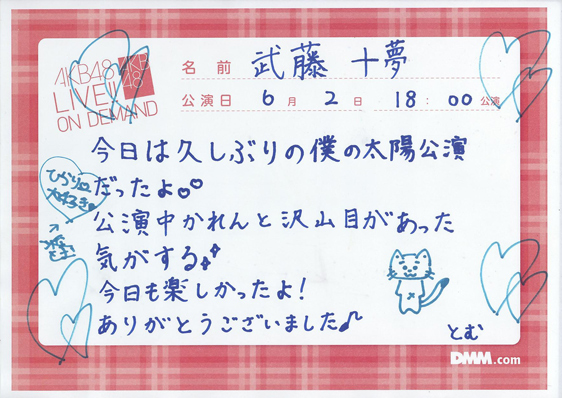 AKB48
LIVE!!
ON DEMAND
AKB
48
名前 武藤 十夢
公演日 6月 2日 18:00公演
今日は久しぶりの僕の太陽公演
だったよ
公演中かれんと沢山目があった
気がする
今日も楽しかったよ！
ありがとうございました♪
大好き
とむ
DMM.com